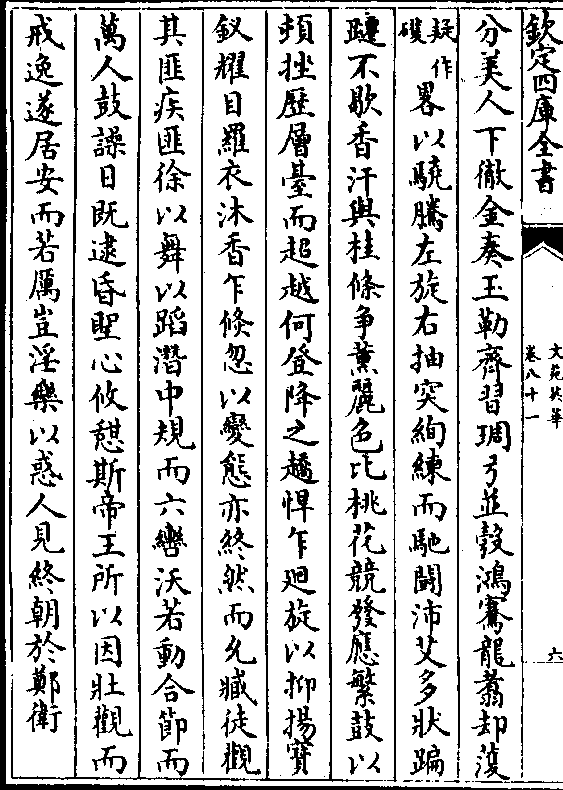 欽定四庫全書
文苑英華
卷八十一
六
分美人下徹金奏玉勒齊習琱弓並彀鴻騫龍翥却
疑作
畧以驍騰左旋右抽突絢練而馳鬭沛艾多狀蹁
躚不歇香汗與桂條争薰麗色比桃花競發應繁鼓以
頓挫歷層臺而超越何登降之趫悍乍迴旋以抑揚寶
釵耀目羅衣沐香乍倐忽以變態亦終然而允臧徒觀
其匪疾匪徐以舞以蹈潛中規而六轡沃若動合節而
萬人鼓譟日既逮昏聖心攸憇斯帝王所以因壯觀而
戒逸遂居安而若厲豈淫樂以惑人見終朝於鄭衛